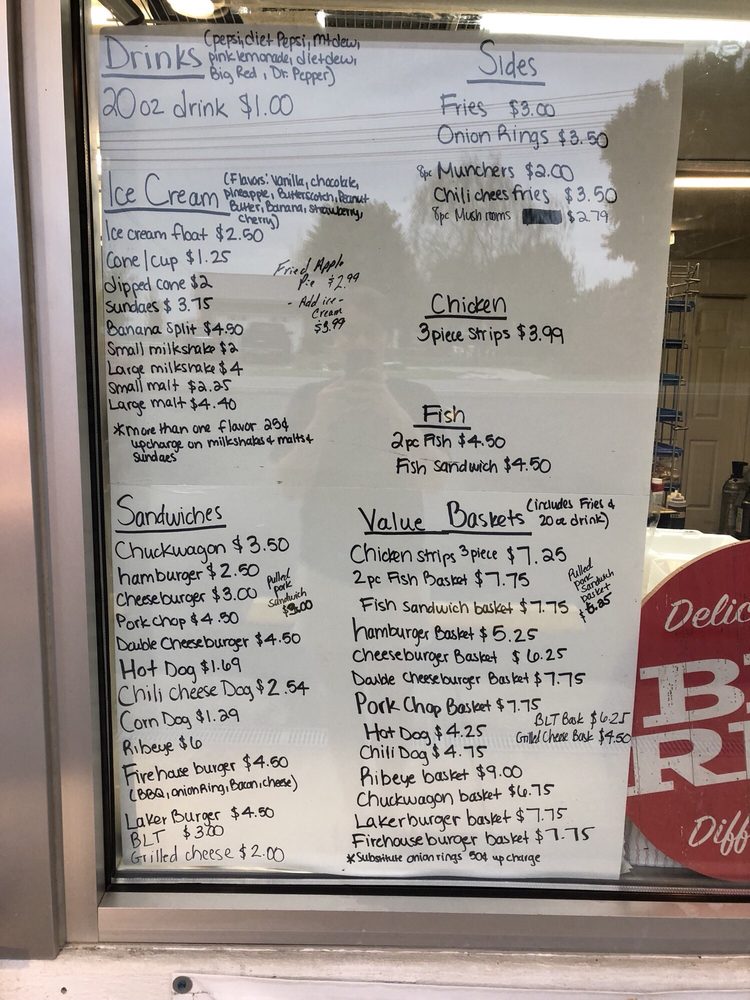 Drinks (pepsi, diet Pepsi, Mtdew,
pink lemonade, dietdew,
Big Red, Dr. Pepper)
20 oz drink $1.00
Ice Cream (Flavors: Vanilla, chocolate,
pineapple, Butterscotch, Peanut
Butter, Banana, strawberry,
cherry)
Ice cream float $2.50
Cone/cup $1.25
dipped cone $2
Sundaes $3.75
Banana Split $4.50
Small milkshake $2
Large milkshake $4
Small malt $2.25
Large malt $4.40
*more than one flavor 25¢
upcharge on milkshakes & malts &
sundaes
Fried Apple
Pie $2.99
- Add ice -
Cream
$3.99
Sides
Fries $3.00
Onion Rings $3.50
8pc Munchers $2.00
Chili chees fries $3.50
8pc Mushrooms $2.79
Chicken
3 piece strips $3.99
Fish
2pc Fish $4.50
Fish sandwich $4.50
Sandwiches
Chuckwagon $3.50
hamburger $2.50
cheeseburger $3.00
Pork chop $4.50
Double Cheeseburger $4.50
Hot Dog $1.69
Chili cheese Dog $2.54
Corn Dog $1.29
Ribeye $6
Firehouse burger $4.50
(BBQ, onion Ring, Bacon, cheese)
Laker Burger $4.50
BLT $3.00
Grilled cheese $2.00
Pulled
pork
Sandwich
Value Baskets (includes Fries &
20 oz drink)
Chicken strips 3 piece $7.25
2pc Fish Basket $7.75
Fish sandwich basket $7.75
hamburger Basket $5.25
cheeseburger Basket $6.25
Double cheeseburger Basket $7.75
Pork Chop Basket $7.75
Hot Dog $4.25
Chili Dog $4.75
Ribeye basket $9.00
Chuckwagon basket $6.75
Lakerburger basket $7.75
Firehouse burger basket $7.75
*Substitute onion rings 50¢ up charge
Pulled
pork
Sandwich
basket
BLT Bask $6.25
Grilled Cheese Bask $4.50
Delic
B
RI
Diff